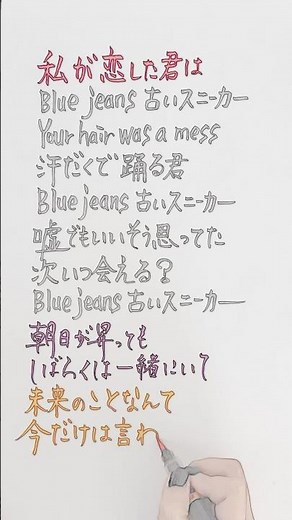 私が恋した君は
Blue jeans 古いスニーカー
Your hair was a mess
汗だくで踊る君
Blue jeans 古いスニーカー
嘘でもいいそう思ってた
次いつ会える？
Blue jeans 古いスニーカー
朝日が昇っても
しばらくは一緒にいて
未来のことなんて
今だけは言わ